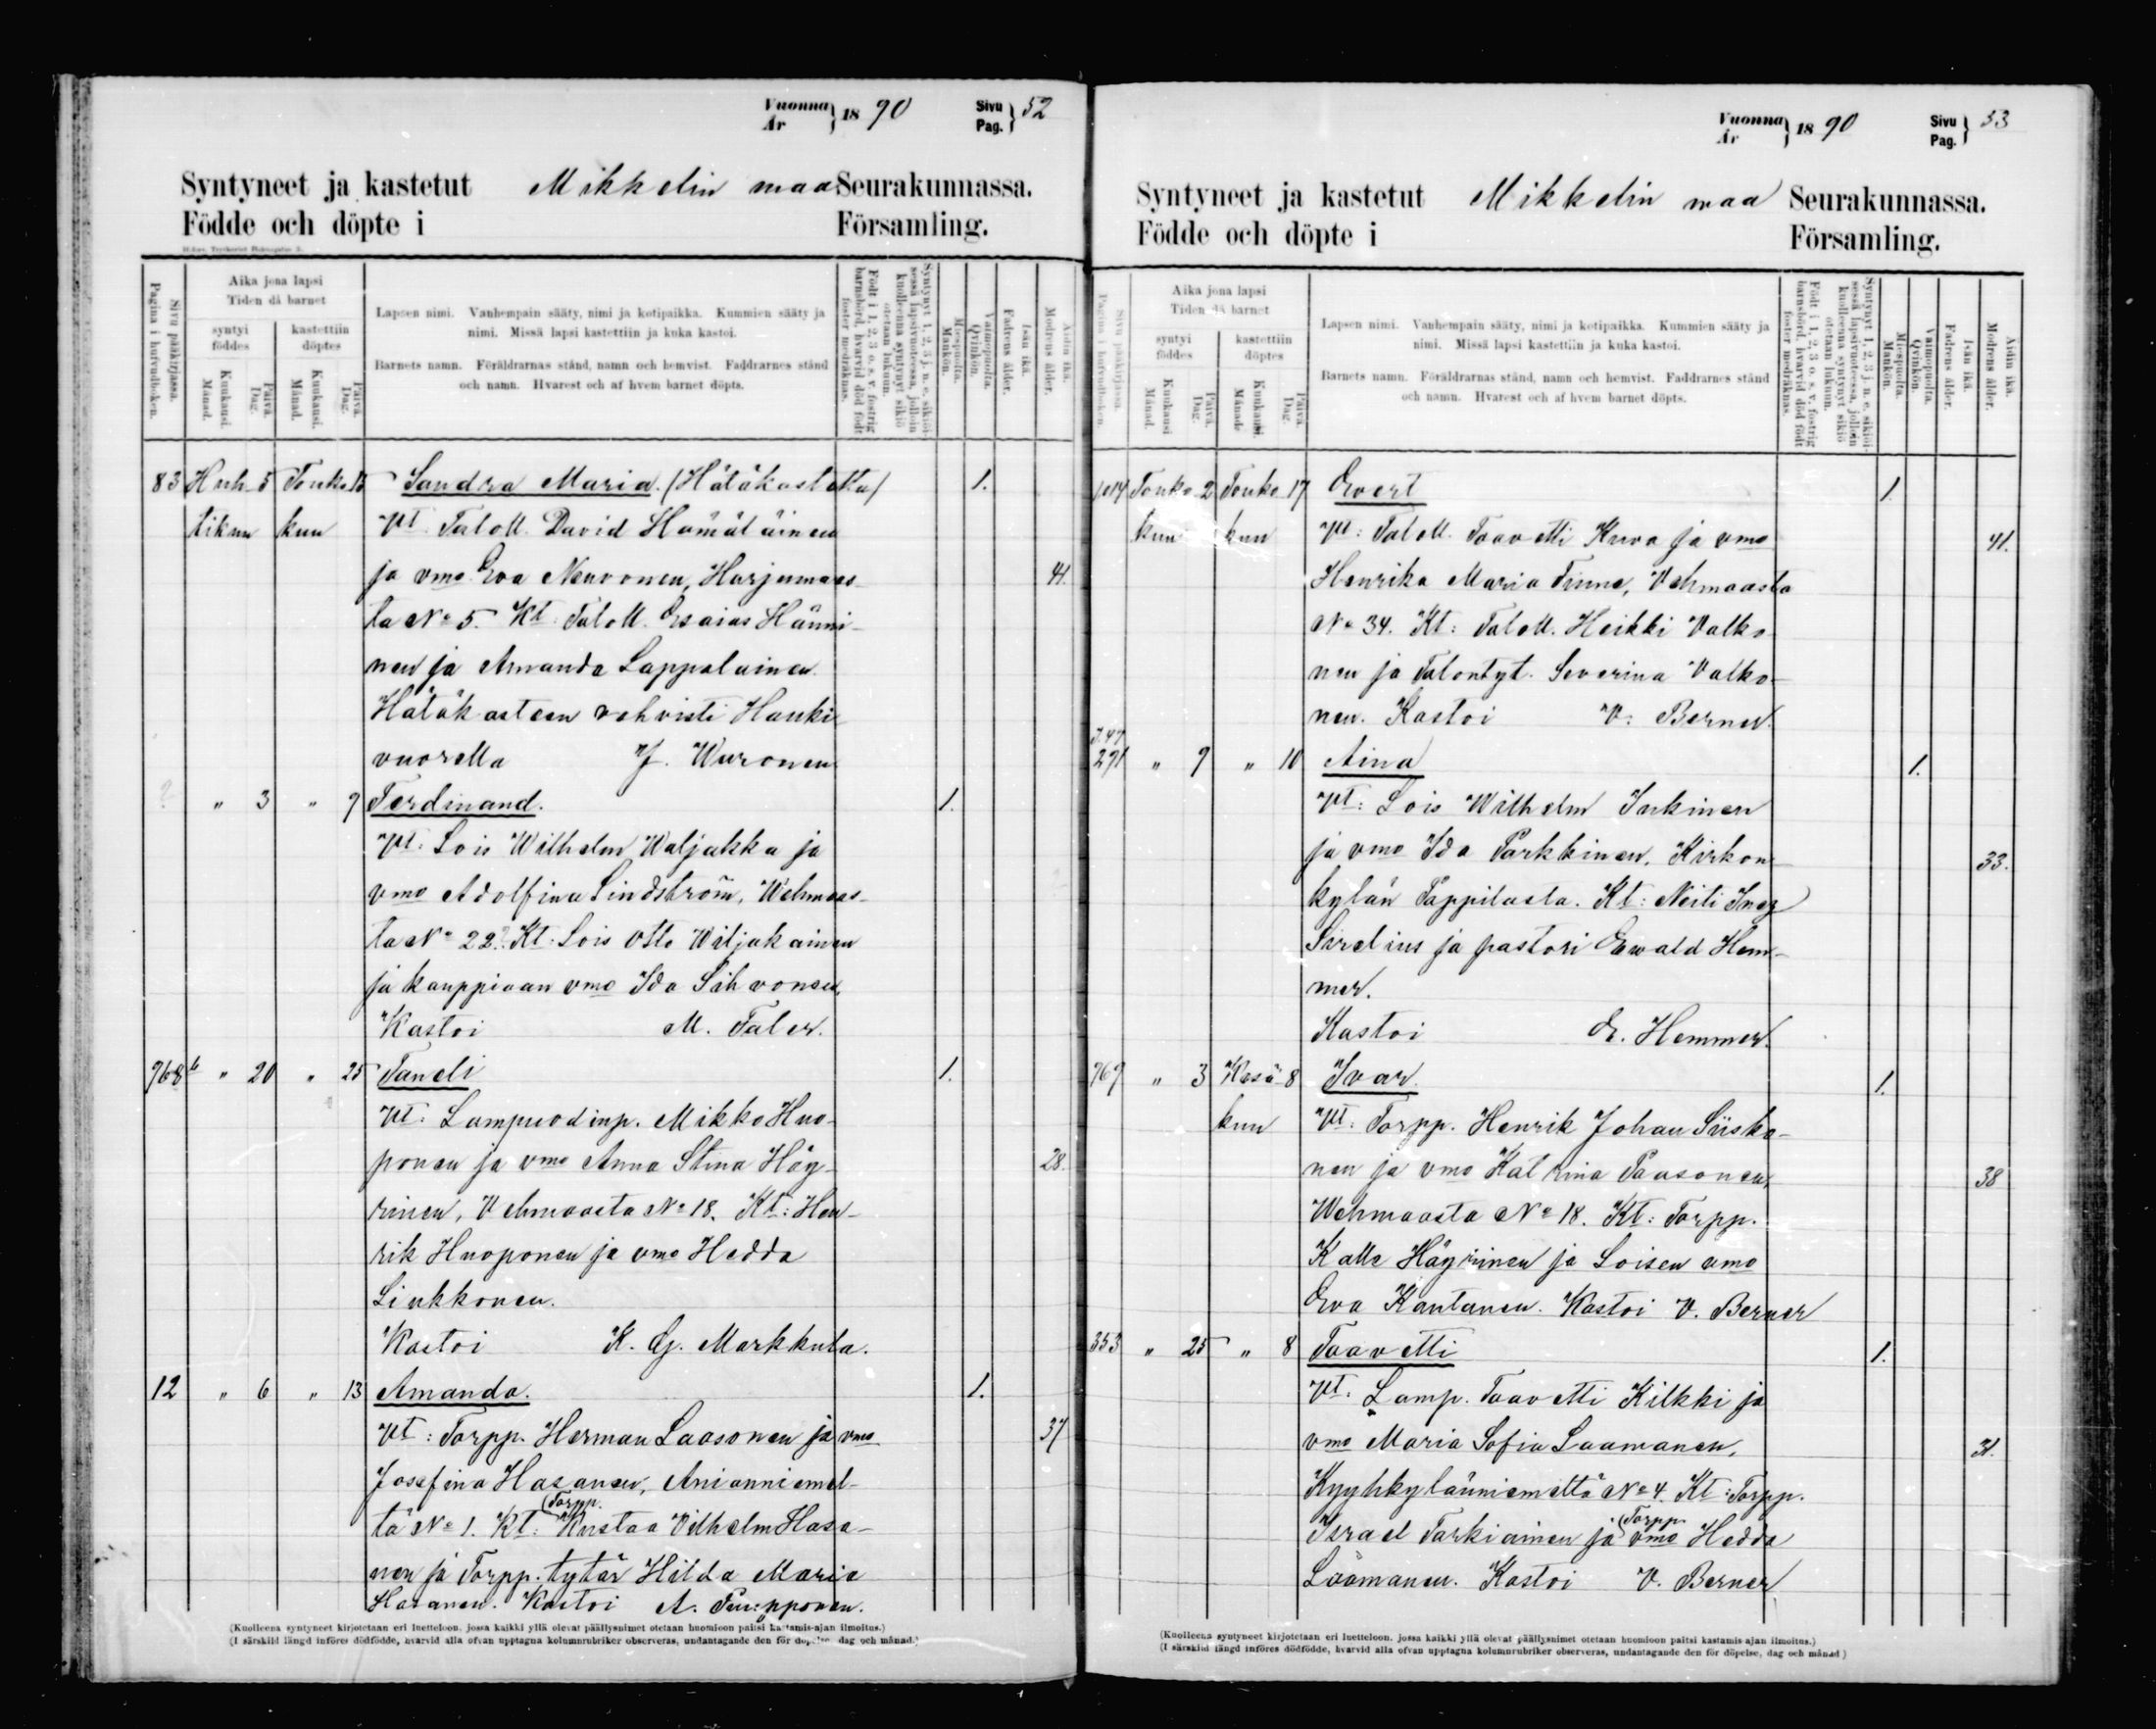 Vuonna År } 1890 Sivu Pag. } 52
Syntyneet ja kastetut Mikkelin maa Seurakunnassa.
Födde och döpte i Församling.
Sivu pääkirjassa. Pagina i hufvudboken.
Aika jona lapsi
Tiden då barnet
syntyi kastettiin
föddes döptes
Kuukausi. Månad. Päivä. Dag. Kuukausi. Månad. Päivä. Dag.
Lapsen nimi. Vanhempain sääty, nimi ja kotipaikka. Kummien sääty ja
nimi. Missä lapsi kastettiin ja kuka kastoi.
Barnets namn. Föräldrarnas stånd, namn och hemvist. Faddrarnes stånd
och namn. Hvarest och af hvem barnet döpts.
Syntynyt 1, 2, 3 j. n. e. sikiöi-
sessä lapsivuoteessa, jolloin
kuolleena syntynyt sikiö
otetaan lukuun.
Född i 1, 2, 3 o. s. v. fostrig
barnsbörd, hvarvid död född
foster medräknas.
Miespuolta. Mankön.
Vaimopuolta. Qvinkön.
Isän ikä. Fadrens ålder.
Äidin ikä. Modrens ålder.
83 Huh- 5 Touko 15 Sandra Maria. (Hätäkastettu) 1.
tikun kun Vt. Taloll. David Hämäläinen
ja vmo Eva Neuvonen, Harjumaas- 41.
ta No 5. Kt: Taloll. Esaias Hänni-
nen ja Amanda Lappalainen.
Hätäkasteen vahvisti Hauki-
vuorella J. Wuronen
? " 3 " 9 Ferdinand. 1.
Vt: Lois Wilhelm Waljakka ja
vmo Adolfina Lindström, Wehmaas-
ta No 22? Kt: Lois Otto Wiljakainen
ja kauppiaan vmo Ida Sihvonen,
Kastoi M. Taler.
968 " 20 " 25 Taneli 1.
Vt: Lampuodinp. Mikko Huo-
ponen ja vmo Anna Stina Häy- 28.
rinen, Vehmaasta No 18. Kt: Hen-
rik Huoponen ja vmo Hedda
Liukkonen.
Kastoi K. G. Markkula.
12 " 6 " 13 Amanda. 1.
Vt: Torpp. Herman Laasonen ja vmo 37
Josefina Hasanen, Anianniemel-
tä No 1. Kt: (Torpp. Kustaa Vilhelm Hasa-
nen ja Torpp. tytär Hilda Maria
Hasanen. Kastoi A.
(Kuolleena syntyneet kirjotetaan eri luetteloon, jossa kaikki yllä olevat päällysnimet otetaan huomioon paitsi kastamis-ajan ilmoitus.)
(I särskild längd införes dödfödde, hvarvid alla ofvan upptagna kolumnrubriker observeras, undantagande den för döpelse, dag och månad.)
Vuonna År } 1890 Sivu Pag. } 53
Syntyneet ja kastetut Mikkelin maa Seurakunnassa.
Födde och döpte i Församling.
Sivu pääkirjassa. Pagina i hufvudboken.
Aika jona lapsi
Tiden då barnet
syntyi kastettiin
föddes döptes
Kuukausi Månad. Päivä. Dag. Kuukausi. Månad Päivä. Dag.
Lapsen nimi. Vanhempain sääty, nimi ja kotipaikka. Kummien sääty ja
nimi. Missä lapsi kastettiin ja kuka kastoi.
Barnets namn. Föräldrarnas stånd, namn och hemvist. Faddrarnes stånd
och namn. Hvarest och af hvem barnet döpts.
Syntynyt 1, 2, 3 j. n. e. sikiöi-
sessä lapsivuoteessa, jolloin
kuolleena syntynyt sikiö
otetaan lukuun.
Född i 1, 2, 3 o. s. v. fostrig
barnsbörd, hvarvid död född
foster medräknas.
Miespuolta. Mankön.
Vaimopuolta. Qvinkön.
Isän ikä. Fadrens ålder.
Äidin ikä. Modrens ålder.
1014 Touko 2 Touko 17 Evert 1.
kun kun Vt: Taloll. Taavetti Kuva ja vmo 41.
Henrika Maria Tinne, Vehmaasta
No 34. Kt: Taloll. Heikki Valko-
nen ja Talontyt. Severina Valko-
nen. Kastoi V. Berner.
J. 47
291 " 9 " 10 Aina 1.
Vt: Lois Wilhelm Inkinen
ja vmo Ida Parkkinen, Kirkon- 33.
kylän Pappilasta. Kt: Neiti Inez
Sirelius ja pastori Ewald Hem-
mer.
Kastoi E. Hemmer.
969 " 3 Kesä- 8 Ivar 1.
kun Vt: Torpp. Henrik Johan Siisko-
nen ja vmo Katrina Paasonen, 38
Wehmaasta No 18. Kt: Torpp.
Kalle Häyrinen ja Loisen vmo
Eva Kantanen. Kastoi V. Berner
353 " 25 " 8 Taavetti 1.
Vt: Lamp. Taavetti Kilkki ja
vmo Maria Sofia Laamanen, 31.
Kyyhkyläniemeltä No 4. Kt: Torpp.
Israel Tarkiainen ja (Torpp. vmo Hedda
Läämanen. Kastoi V. Berner
(Kuolleena syntyneet kirjotetaan eri luetteloon, jossa kaikki yllä olevat päällysnimet otetaan huomioon paitsi kastamis-ajan ilmoitus.)
(I särskild längd införes dödfödde, hvarvid alla ofvan upptagna kolumnrubriker observeras, undantagande den för döpelse, dag och månad)